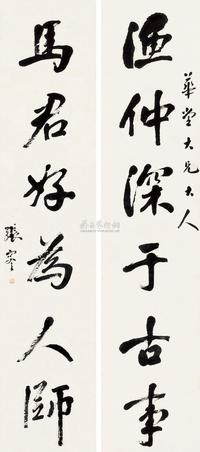 華堂大兄大人
漁仲深于古事
馬君好為人師
張謇